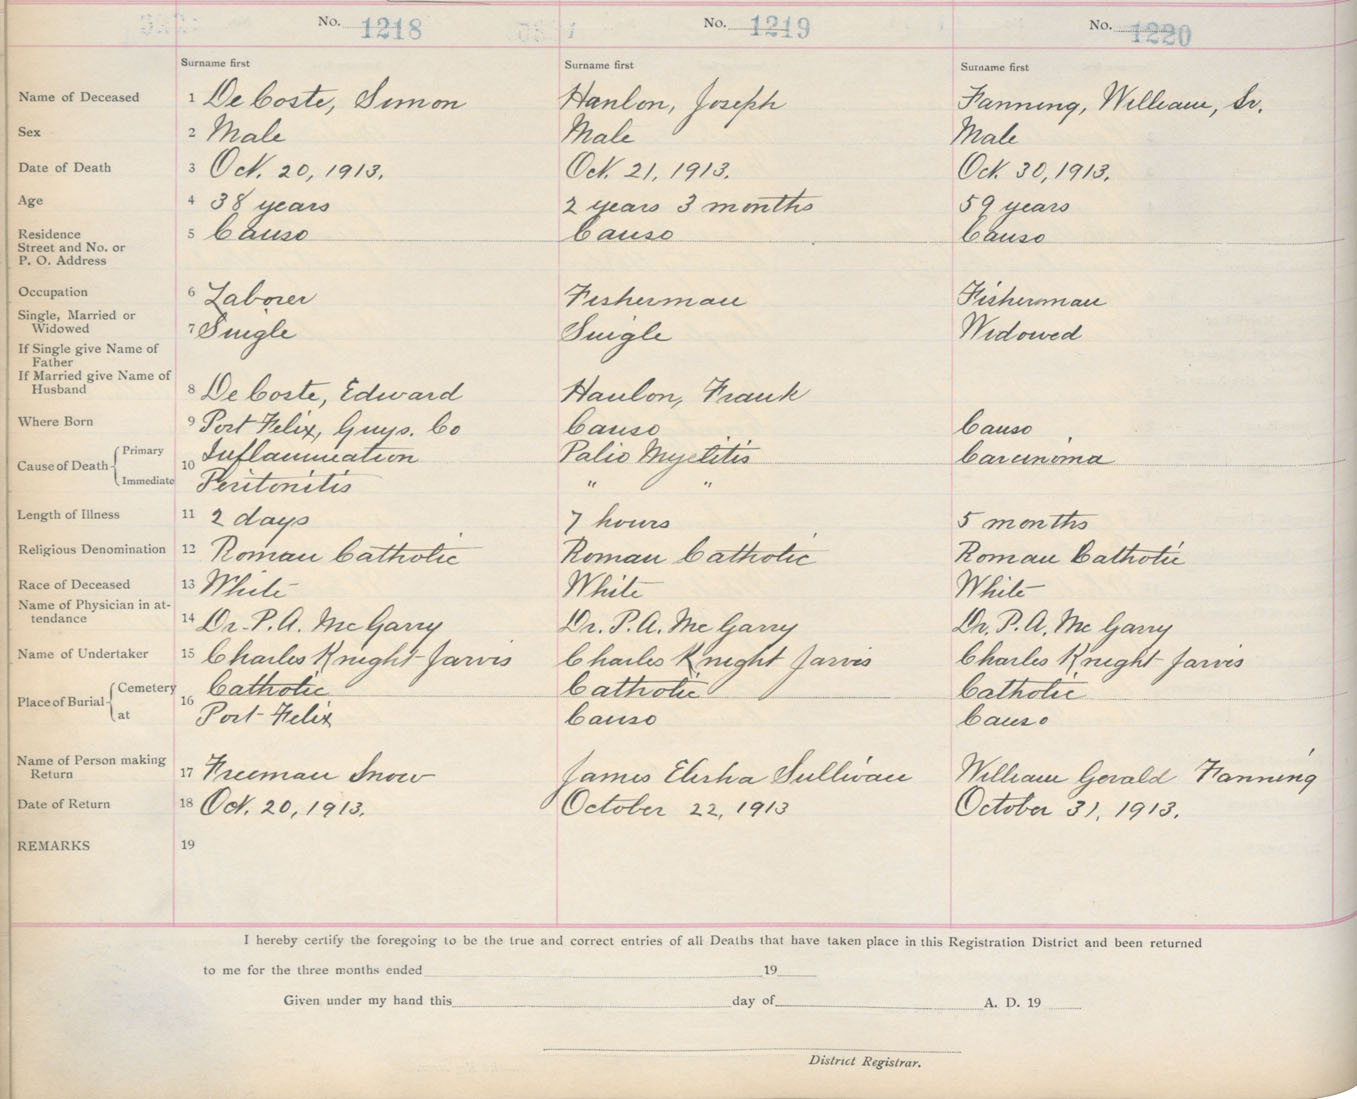 No. 1218 No. 1219 No. 1220
Surname first Surname first Surname first
Name of Deceased 1 DeCoste, Simon Hanlon, Joseph Fanning, William, Sr.
Sex 2 Male Male Male
Date of Death 3 Oct. 20, 1913. Oct. 21, 1913. Oct. 30, 1913.
Age 4 38 years 2 years 3 months 59 years
Residence 5 Canso Canso Canso
Street and No. or
P. O. Address
Occupation 6 Laborer Fisherman Fisherman
Single, Married or
Widowed 7 Single Single Widowed
If Single give Name of
Father
If Married give Name of
Husband 8 DeCoste, Edward Hanlon, Frank
Where Born 9 Port Felix, Guys. Co Canso Canso
Cause of Death Primary 10 Inflammation Palio Myelitis Carcinoma
Immediate Peritonitis " "
Length of Illness 11 2 days 7 hours 5 months
Religious Denomination 12 Roman Catholic Roman Catholic Roman Catholic
Race of Deceased 13 White White White
Name of Physician in at-
tendance 14 Dr. P.A. McGarry Dr. P.A. McGarry Dr. P.A. McGarry
Name of Undertaker 15 Charles Knight Jarvis Charles Knight Jarvis Charles Knight Jarvis
Place of Burial Cemetery 16 Catholic Catholic Catholic
at Port Felix Canso Canso
Name of Person making
Return 17 Freeman Snow James Elisha Sullivan William Gerald Fanning
Date of Return 18 Oct. 20, 1913. October 22, 1913 October 31, 1913.
REMARKS 19
I hereby certify the foregoing to be the true and correct entries of all Deaths that have taken place in this Registration District and been returned
to me for the three months ended 19
Given under my hand this day of A. D. 19
District Registrar.